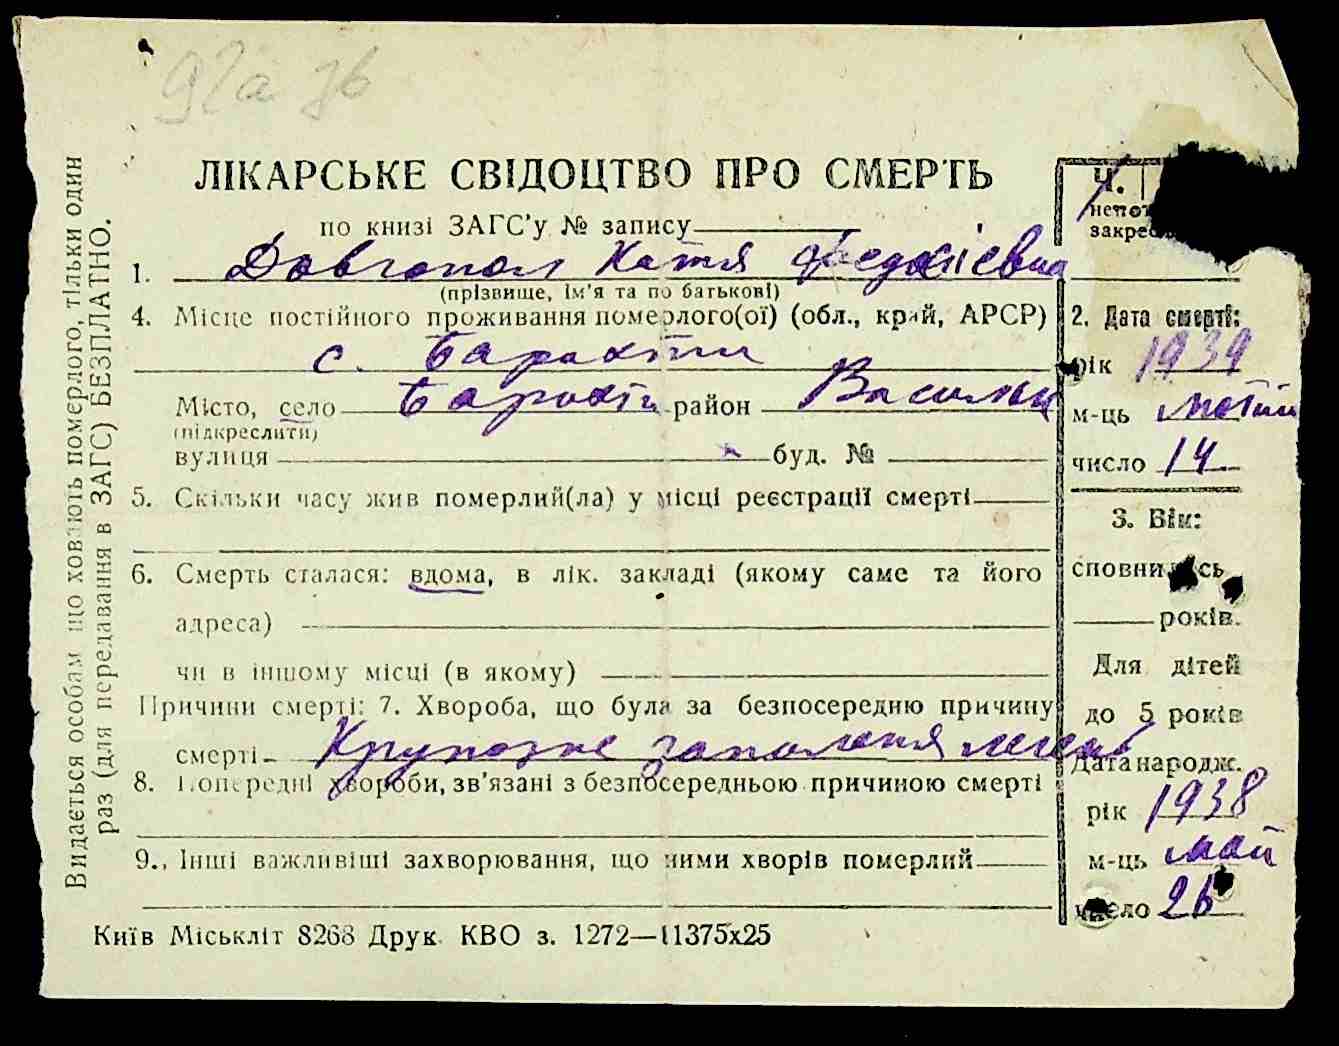 92а зв
ЛІКАРСЬКЕ СВІДОЦТВО ПРО СМЕРТЬ
по книзі ЗАГС'у № запису
1. Довгопол Катя
(прізвище, ім'я та по батькові)
4. Місце постійного проживання померлого(ої) (обл., край, АРСР)
с. Барахти
Місто, село Барахти район Васильк
(підкреслити)
вулиця буд. №
5. Скільки часу жив померлий(ла) у місці реєстрації смерті
6. Смерть сталася: вдома, в лік. закладі (якому саме та його
адреса)
чи в іншому місці (в якому)
Причини смерті: 7. Хвороба, що була за безпосередню причину
смерті Крупозне запалення легенів
8. Попередні хвороби, зв'язані з безпосередньою причиною смерті
9., Інші важливіші захворювання, що ними хворів померлий
Київ Міськліт 8268 Друк. КВО з. 1272—11375х25
Ч.
2. Дата смерті:
рік 1939
м-ць лютий
число 14
3. Вік:
сповнилось
років.
Для дітей
до 5 років
Дата народж.
рік 1938
м-ць май
число 26
Видається особам що ховають померлого, тільки один
раз (для передавання в ЗАГС) БЕЗПЛАТНО.